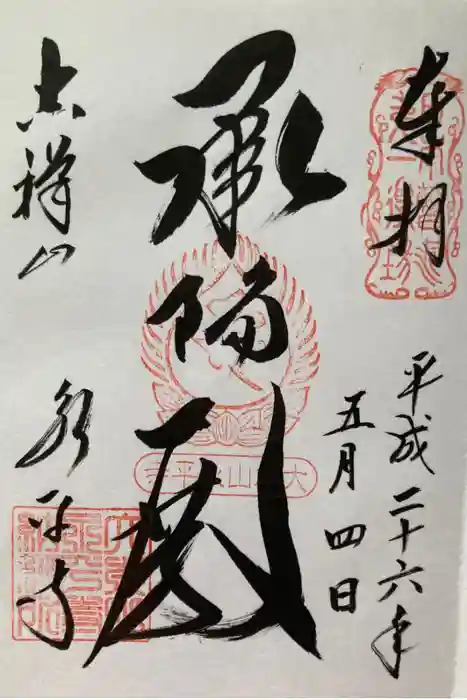 奉拝
平成二十六年
五月四日
承陽殿
大本山永平寺
吉祥山
永平寺